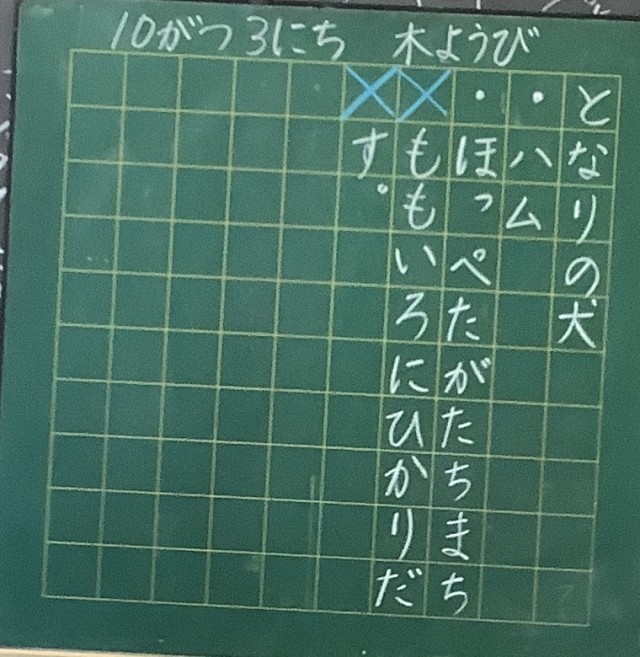 10がつ3にち 木ようび
となりの犬
・ハム
・ほっぺたがたちまち
ももいろにひかりだ
す。